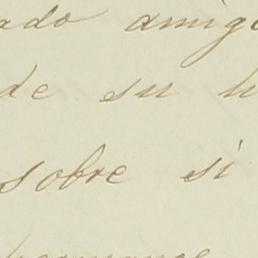 ado amigo
de su h
sobre si